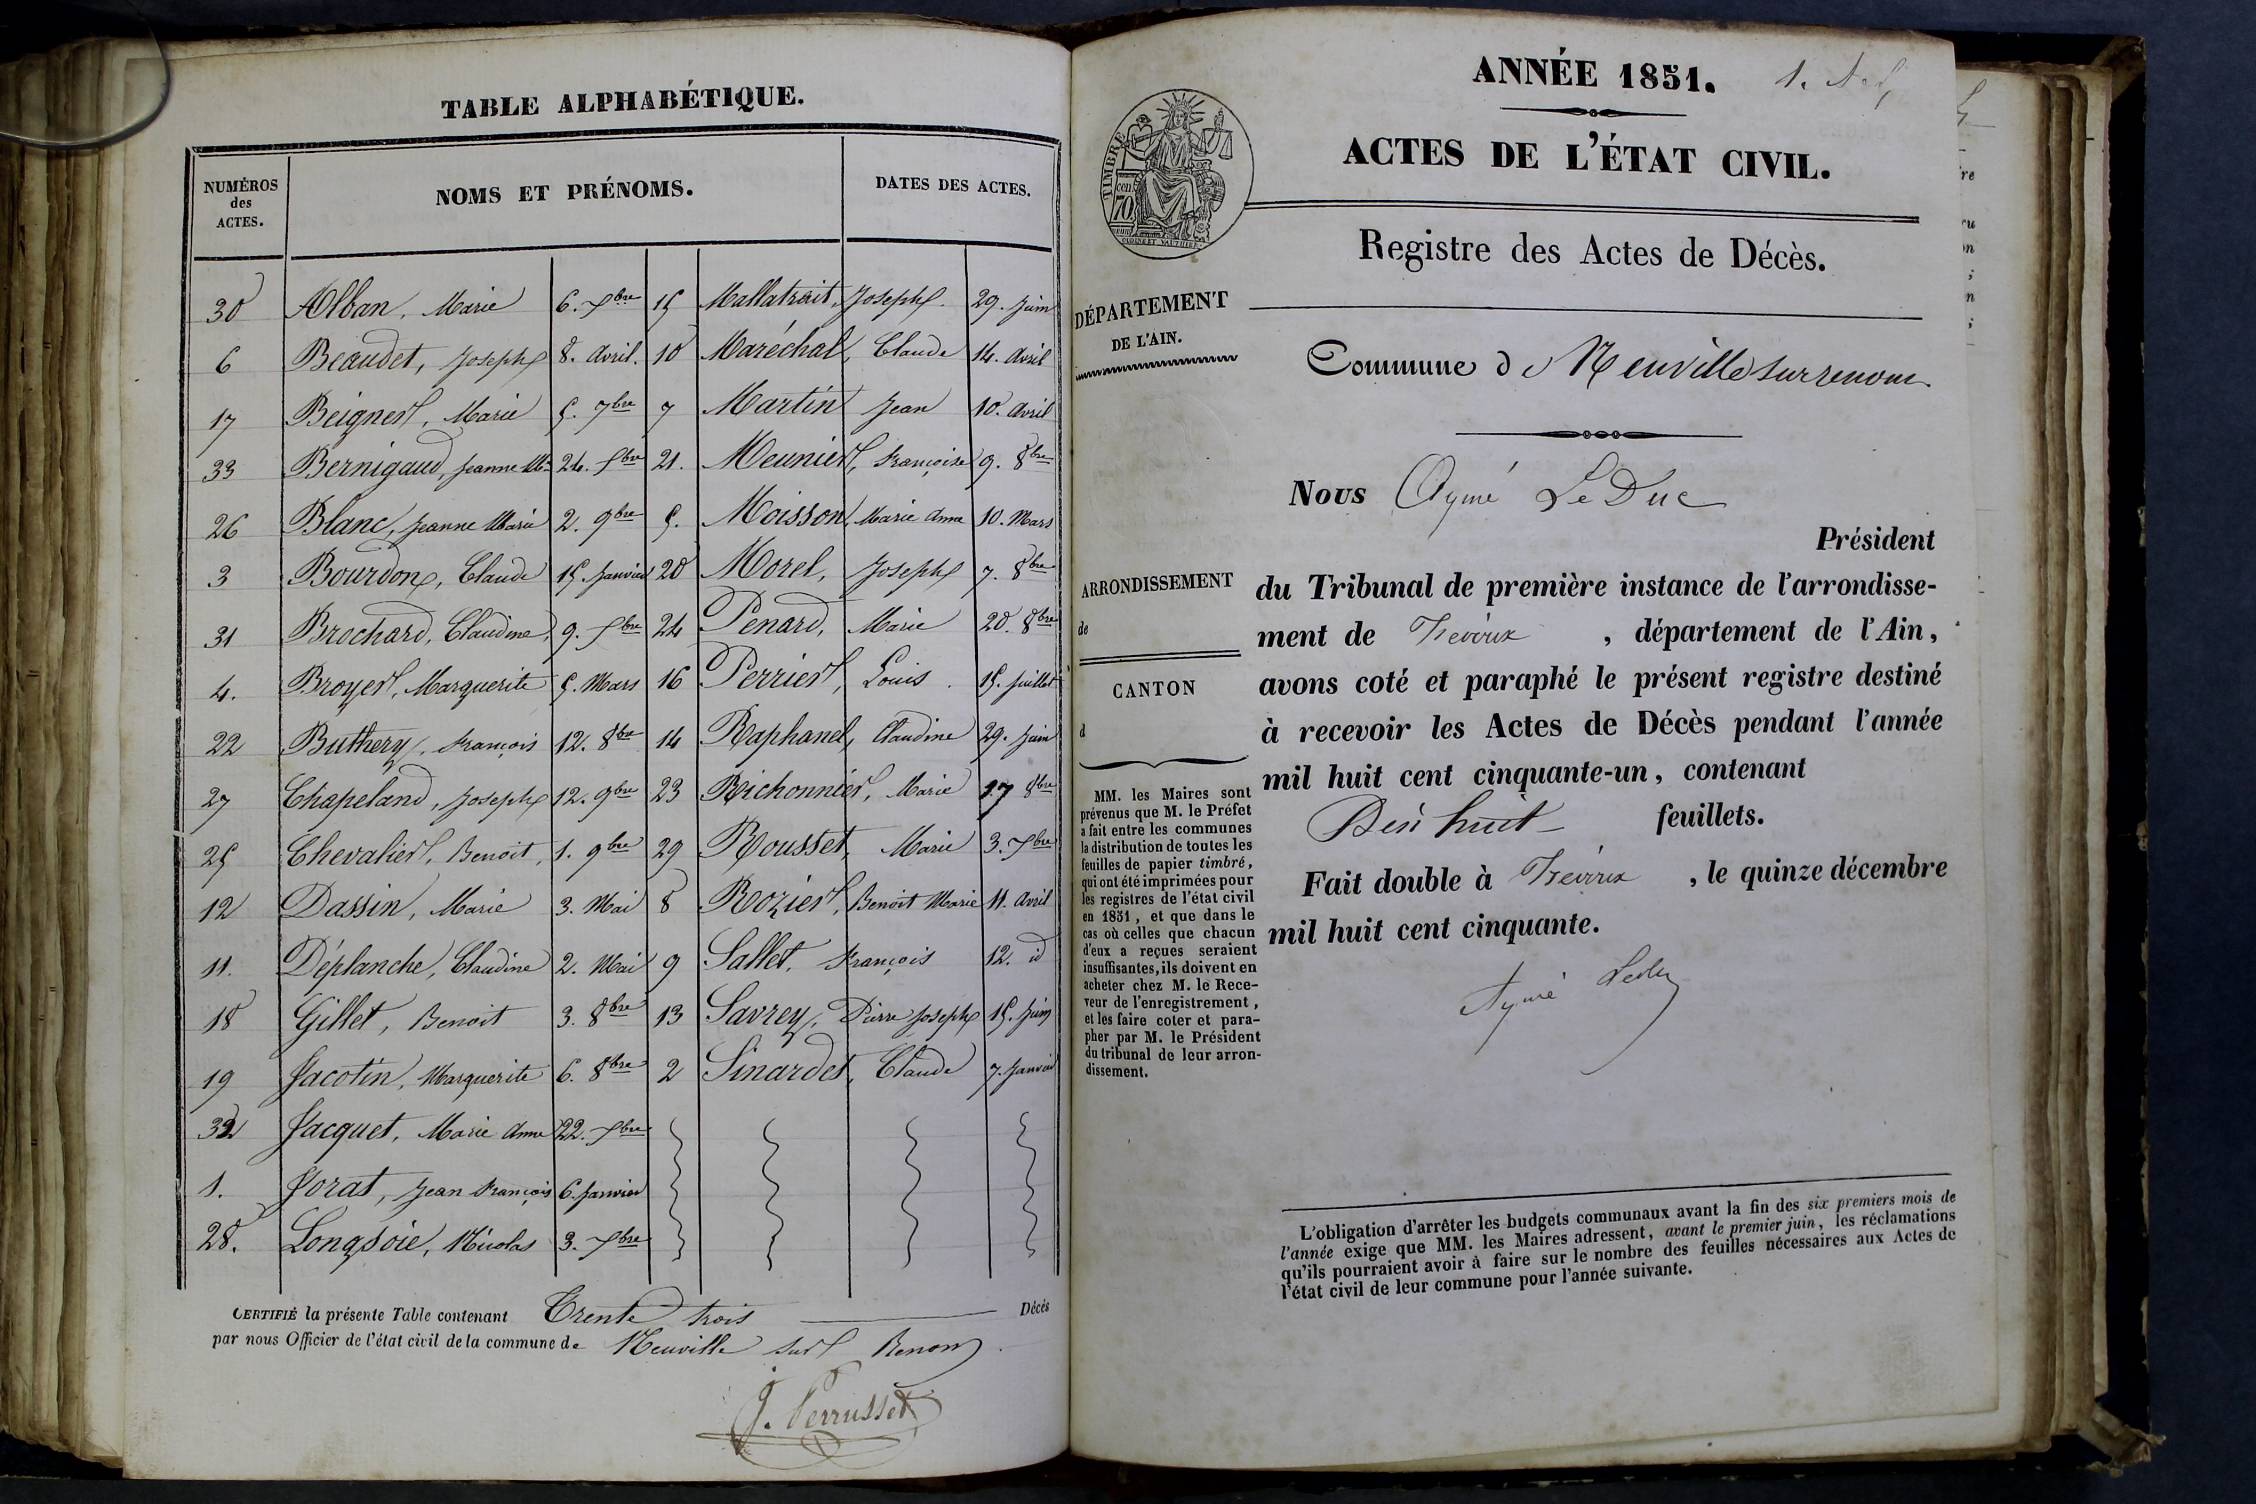 TABLE ALPHABÉTIQUE.
NUMÉROS des ACTES.
NOMS ET PRÉNOMS.
DATES DES ACTES.
30 Alban, Marie 6. Xbre 15 Mallatrait, Joseph. 29. Juin
6 Beaudet, Joseph 8. Avril. 10 Maréchal, Claude 14. Avril
17 Beigner, Marie 5. 7bre 7 Martin Jean 10. Avril
33 Bernigaud, Jeanne Mie 24. Xbre 21. Meunier, Françoise 9. 8bre
26 Blanc, Jeanne Marie 2. 9bre 5. Moisson, Marie Anne 10. Mars
3 Bourdon, Claude 15 Janvier 20 Morel, Joseph 7. 8bre
31 Brochard, Claudine, 9. Xbre 24 Penard, Marie 20. 8bre
4. Broyer, Marguerite 5. Mars 16 Perrier, Louis. 15. Juillet
22 Buthery, François 12. 8bre 14 Raphanel, Claudine 29. Juin
27 Chapeland, Joseph 12. 9bre 23 Richonnier, Marie 17 8bre
25 Chevalier, Benoit, 1. 9bre 29 Rousset, Marie 3. Xbre
12 Dassin, Marie 3. Mai 8 Rozier, Benoit Marie 11. Avril
11. Déplanche, Claudine 2. Mai 9 Sallet, François 12. id
18 Gillet, Benoit 3. 8bre 13 Savrey, Pierre Joseph 15. Juin
19 Jacotin, Marguerite 6. 8bre 2 Sinardet, Claude 7. Janvier
32 Jacquet, Marie Anne 22. Xbre
1. Jorat, Jean François 6. Janvier
28. Longsoie, Nicolas 3. Xbre
CERTIFIÉ la présente Table contenant Trente trois Décés
par nous Officier de l'état civil de la commune de Neuville sur Renon
J. Perrusset
ANNÉE 1851.
ACTES DE L'ÉTAT CIVIL.
TIMBRE
70 cen.
Registre des Actes de Décès.
DÉPARTEMENT
DE L'AIN.
Commune de Neuville sur renom
Nous Aymé Le Duc
Président
ARRONDISSEMENT
de
CANTON
d
du Tribunal de première instance de l'arrondisse-
ment de Trévoux, département de l'Ain,
avons coté et paraphé le présent registre destiné
à recevoir les Actes de Décès pendant l'année
mil huit cent cinquante-un, contenant
Dix huit feuillets.
Fait double à Trévoux, le quinze décembre
mil huit cent cinquante.
Aymé Leduc
MM. les Maires sont
prévenus que M. le Préfet
a fait entre les communes
la distribution de toutes les
feuilles de papier timbré,
qui ont été imprimées pour
les registres de l'état civil
en 1851, et que dans le
cas où celles que chacun
d'eux a reçues seraient
insuffisantes, ils doivent en
acheter chez M. le Rece-
veur de l'enregistrement,
et les faire coter et para-
pher par M. le Président
du tribunal de leur arron-
dissement.
L'obligation d'arrêter les budgets communaux avant la fin des six premiers mois de
l'année exige que MM. les Maires adressent, avant le premier juin, les réclamations
qu'ils pourraient avoir à faire sur le nombre des feuilles nécessaires aux Actes de
l'état civil de leur commune pour l'année suivante.